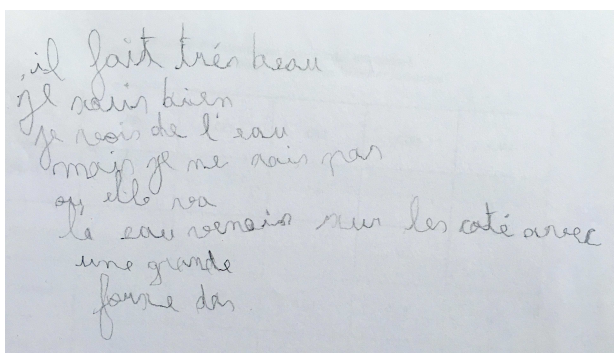 il fait trés beau
je suis bien
je vois de l'eau
mais je ne sais pas
ou elle va
la eau venais sur les coté avec
une grande
force des